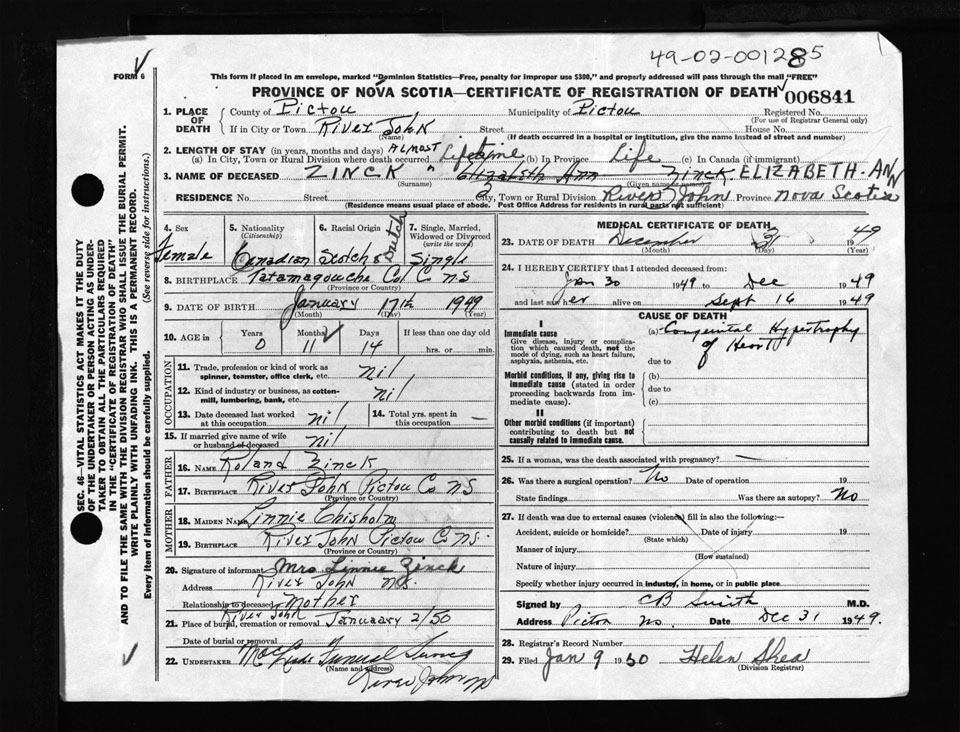 49-02-001285
FORM 6
This form if placed in an envelope, marked "Dominion Statistics—Free, penalty for improper use $300," and properly addressed will pass through the mail "FREE"
PROVINCE OF NOVA SCOTIA—CERTIFICATE OF REGISTRATION OF DEATH 006841
1. PLACE OF DEATH County of Pictou Municipality of Pictou Registered No.
(For use of Registrar General only)
If in City or Town River John Street House No.
(Name) (If death occurred in a hospital or institution, give the name instead of street and number)
2. LENGTH OF STAY (in years, months and days) ALMOST
(a) In City, Town or Rural Division where death occurred Lifetime (b) In Province Life (c) In Canada (if immigrant)
3. NAME OF DECEASED ZINCK Elizabeth Ann Zinck. ELIZABETH-ANN
(Surname) (Given name or names)
RESIDENCE No. Street City, Town or Rural Division River John Province Nova Scotia
(Residence means usual place of abode. Post Office Address for residents in rural parts not sufficient)
4. Sex Female
5. Nationality (Citizenship) Canadian
6. Racial Origin Scotch & Dutch
7. Single, Married, Widowed or Divorced (write the word) Single
8. BIRTHPLACE Tatamagouche Col. Co. N S
(Province or Country)
9. DATE OF BIRTH January 17th 1949
(Month) (Day) (Year)
10. AGE in Years 0 Months 11 Days 14 If less than one day old hrs. or min.
OCCUPATION
11. Trade, profession or kind of work as spinner, teamster, office clerk, etc. nil
12. Kind of industry or business, as cotton-mill, lumbering, bank, etc. nil
13. Date deceased last worked at this occupation nil
14. Total yrs. spent in this occupation —
15. If married give name of wife or husband of deceased nil
FATHER
16. NAME Roland Zinck
17. BIRTHPLACE River John Pictou Co NS
(Province or Country)
MOTHER
18. MAIDEN NAME Linnie Chisholm
19. BIRTHPLACE River John Pictou C NS.
(Province or Country)
20. Signature of informant Mrs Linnie Zinck
Address River John N.S.
Relationship to deceased Mother
21. Place of burial, cremation or removal River John January 2/50
Date of burial or removal
22. UNDERTAKER Funeral
(Name and address)
River John
MEDICAL CERTIFICATE OF DEATH
23. DATE OF DEATH December 1949
(Month) (Day) (Year)
24. I HEREBY CERTIFY that I attended deceased from:
Jan 30 1949 to Dec 1949
and last saw her alive on Sept 16 1949
CAUSE OF DEATH
I
Immediate cause
Give disease, injury or complication which caused death, not the mode of dying, such as heart failure, asphyxia, asthenia, etc.
(a) Congenital Hypertrophy of Heart
due to
Morbid conditions, if any, giving rise to immediate cause (stated in order proceeding backwards from immediate cause).
(b)
due to
(c)
II
Other morbid conditions (if important) contributing to death but not causally related to immediate cause.
25. If a woman, was the death associated with pregnancy? —
26. Was there a surgical operation? No Date of operation 19
State findings Was there an autopsy? No
27. If death was due to external causes (violence) fill in also the following:—
Accident, suicide or homicide? Date of injury 19
(State which)
Manner of injury
(How sustained)
Nature of injury
Specify whether injury occurred in industry, in home, or in public place
Signed by CB Smith M.D.
Address Pictou NS. Date Dec 31 1949.
28. Registrar's Record Number
29. Filed Jan 9 1950 Helen Shea
(Division Registrar)
SEC. 46—VITAL STATISTICS ACT MAKES IT THE DUTY
OF THE UNDERTAKER OR PERSON ACTING AS UNDER-
TAKER TO OBTAIN ALL THE PARTICULARS REQUIRED
IN THE "CERTIFICATE OF REGISTRATION OF DEATH"
AND TO FILE THE SAME WITH THE DIVISION REGISTRAR WHO SHALL ISSUE THE BURIAL PERMIT.
WRITE PLAINLY WITH UNFADING INK. THIS IS A PERMANENT RECORD.
Every item of information should be carefully supplied. (See reverse side for instructions.)